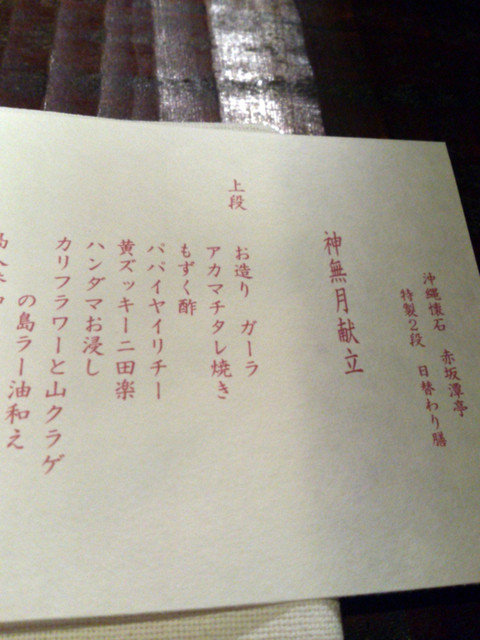 沖縄懐石 赤坂潭亭
特製2段 日替わり膳
神無月献立
上段
お造り ガーラ
アカマチタレ焼き
もずく酢
パパイヤイリチー
黄ズッキーニ田楽
ハンダマお浸し
カリフラワーと山クラゲ
の島ラー油和え